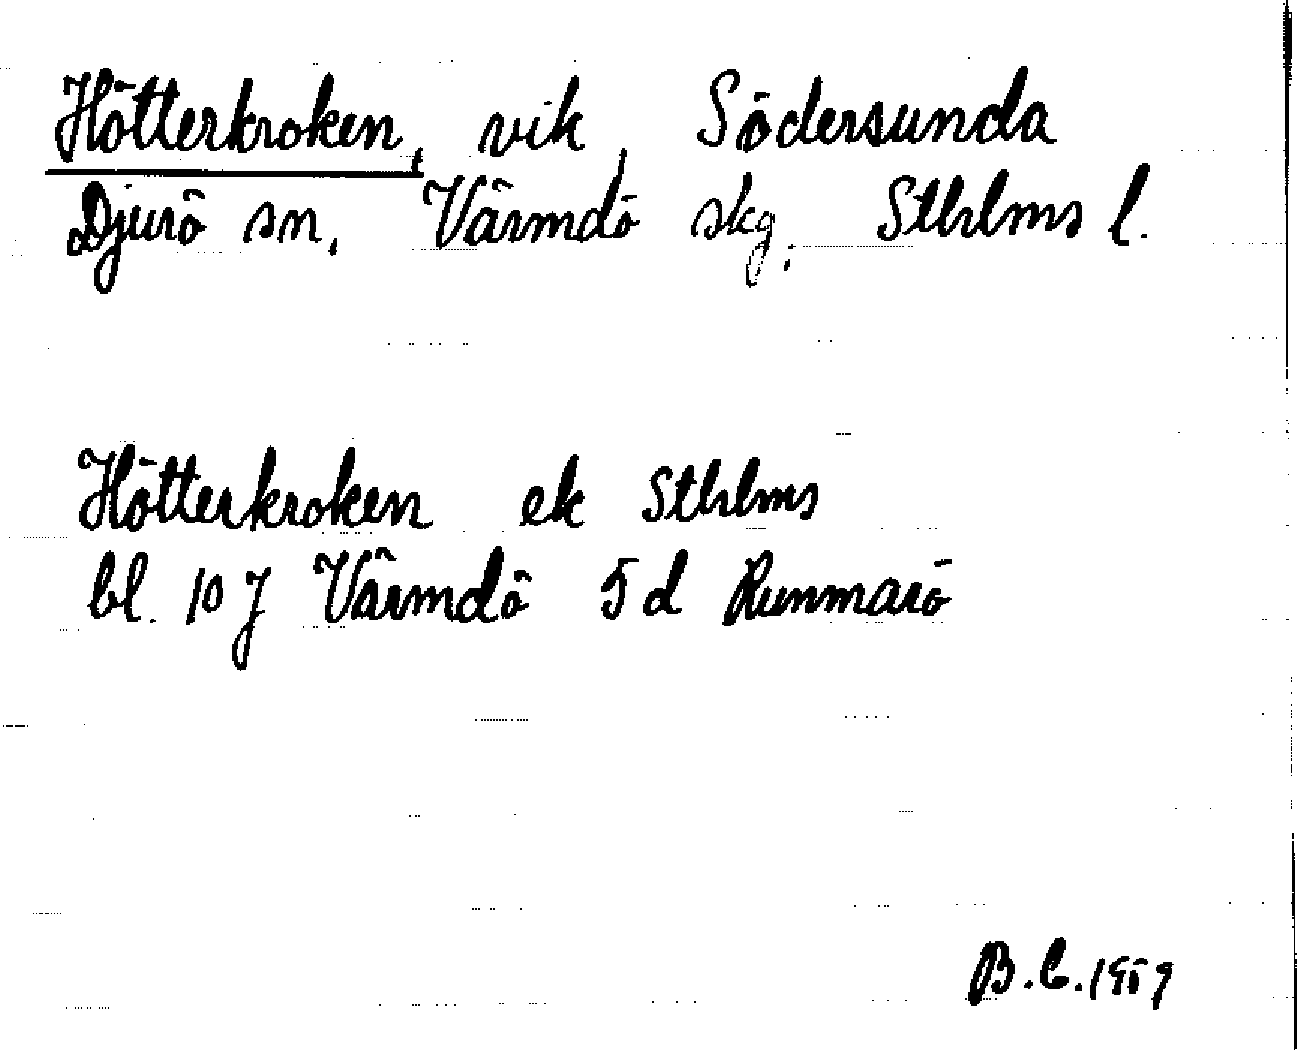 Hötterkroken, vik, Södersunda
Djurö sn, Värmdö skg, Sthlms l.
Hötterkroken ek Sthlms
bl. 10 J Värmdö 5 d Runmarö
B.C. 1959